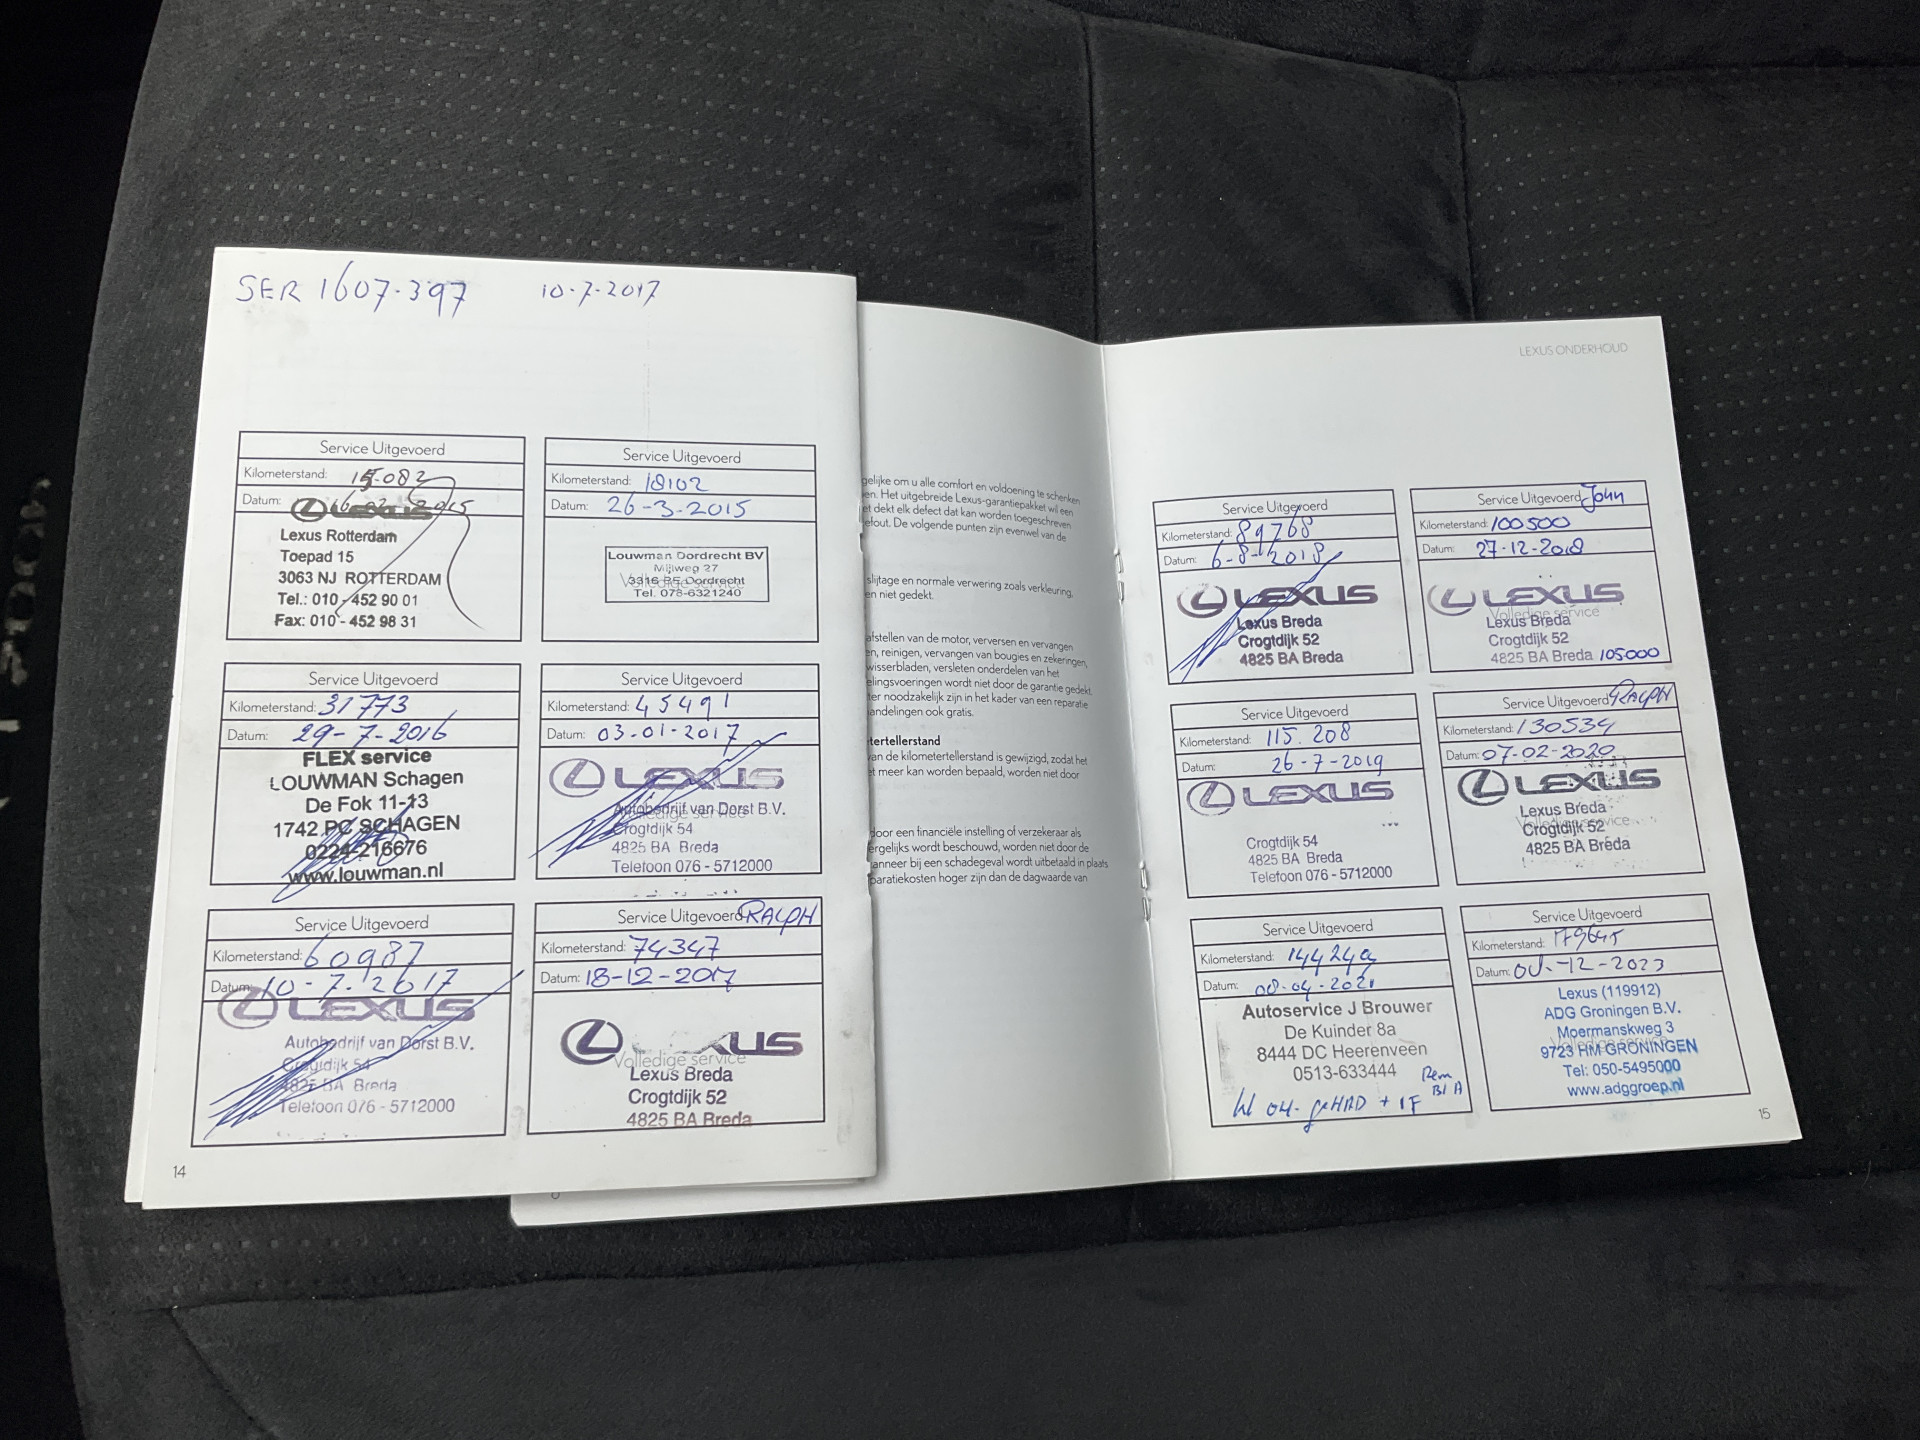 SER 1607-397 10-7-2017
Service Uitgevoerd
Kilometerstand: 15.082
Datum: 2015
LEXUS
Lexus Rotterdam
Toepad 15
3063 NJ ROTTERDAM
Tel.: 010 - 452 90 01
Fax: 010 - 452 98 31
Service Uitgevoerd
Kilometerstand: 18102
Datum: 26-3-2015
Louwman Dordrecht BV
Mijlweg 27
3316 BE Dordrecht
Volledige service
Tel. 078-6321240
Service Uitgevoerd
Kilometerstand: 31773
Datum: 29-7-2016
FLEX service
LOUWMAN Schagen
De Fok 11-13
1742 PC SCHAGEN
0224-216676
www.louwman.nl
Service Uitgevoerd
Kilometerstand: 45491
Datum: 03-01-2017
LEXUS
Autobedrijf van Dorst B.V.
Volledige service
Crogtdijk 54
4825 BA Breda
Telefoon 076 - 5712000
Service Uitgevoerd
Kilometerstand: 60987
Datum: 10-7-2017
LEXUS
Autobedrijf van Dorst B.V.
Crogtdijk 54
4825 BA Breda
Telefoon 076 - 5712000
Service Uitgevoerd RALPH
Kilometerstand: 74347
Datum: 18-12-2017
XUS
Volledige service
Lexus Breda
Crogtdijk 52
4825 BA Breda
14
gelijke om u alle comfort en voldoening te schenken
en. Het uitgebreide Lexus-garantiepakket wil een
et dekt elk defect dat kan worden toegeschreven
efout. De volgende punten zijn evenwel van de
slijtage en normale verwering zoals verkleuring,
en niet gedekt.
afstellen van de motor, verversen en vervangen
en, reinigen, vervangen van bougies en zekeringen,
wisserbladen, versleten onderdelen van het
elingsvoeringen wordt niet door de garantie gedekt,
ter noodzakelijk zijn in het kader van een reparatie
andelingen ook gratis.
tertellerstand
van de kilometertellerstand is gewijzigd, zodat het
et meer kan worden bepaald, worden niet door
door een financiële instelling of verzekeraar als
ergelijks wordt beschouwd, worden niet door de
anneer bij een schadegeval wordt uitbetaald in plaats
paratiekosten hoger zijn dan de dagwaarde van
LEXUS ONDERHOUD
Service Uitgevoerd
Kilometerstand: 89768
Datum: 6-8-2018
LEXUS
Lexus Breda
Crogtdijk 52
4825 BA Breda
Service Uitgevoerd John
Kilometerstand: 100500
Datum: 27-12-2018
LEXUS
Volledige service
Lexus Breda
Crogtdijk 52
4825 BA Breda 105000
Service Uitgevoerd
Kilometerstand: 115.208
Datum: 26-7-2019
LEXUS
Crogtdijk 54
4825 BA Breda
Telefoon 076 - 5712000
Service Uitgevoerd RALPH
Kilometerstand: 130534
Datum: 07-02-2020
LEXUS
Lexus Breda
Volledige service
Crogtdijk 52
4825 BA Breda
Service Uitgevoerd
Kilometerstand:
Datum: 08-04-2021
Autoservice J Brouwer
De Kuinder 8a
8444 DC Heerenveen
0513-633444
Rem
Service Uitgevoerd
Kilometerstand: 179645
Datum: -12-2023
Lexus (119912)
ADG Groningen B.V.
Moermanskweg 3
Volledige service
9723 HM GRONINGEN
Tel: 050-5495000
www.adggroep.nl
15